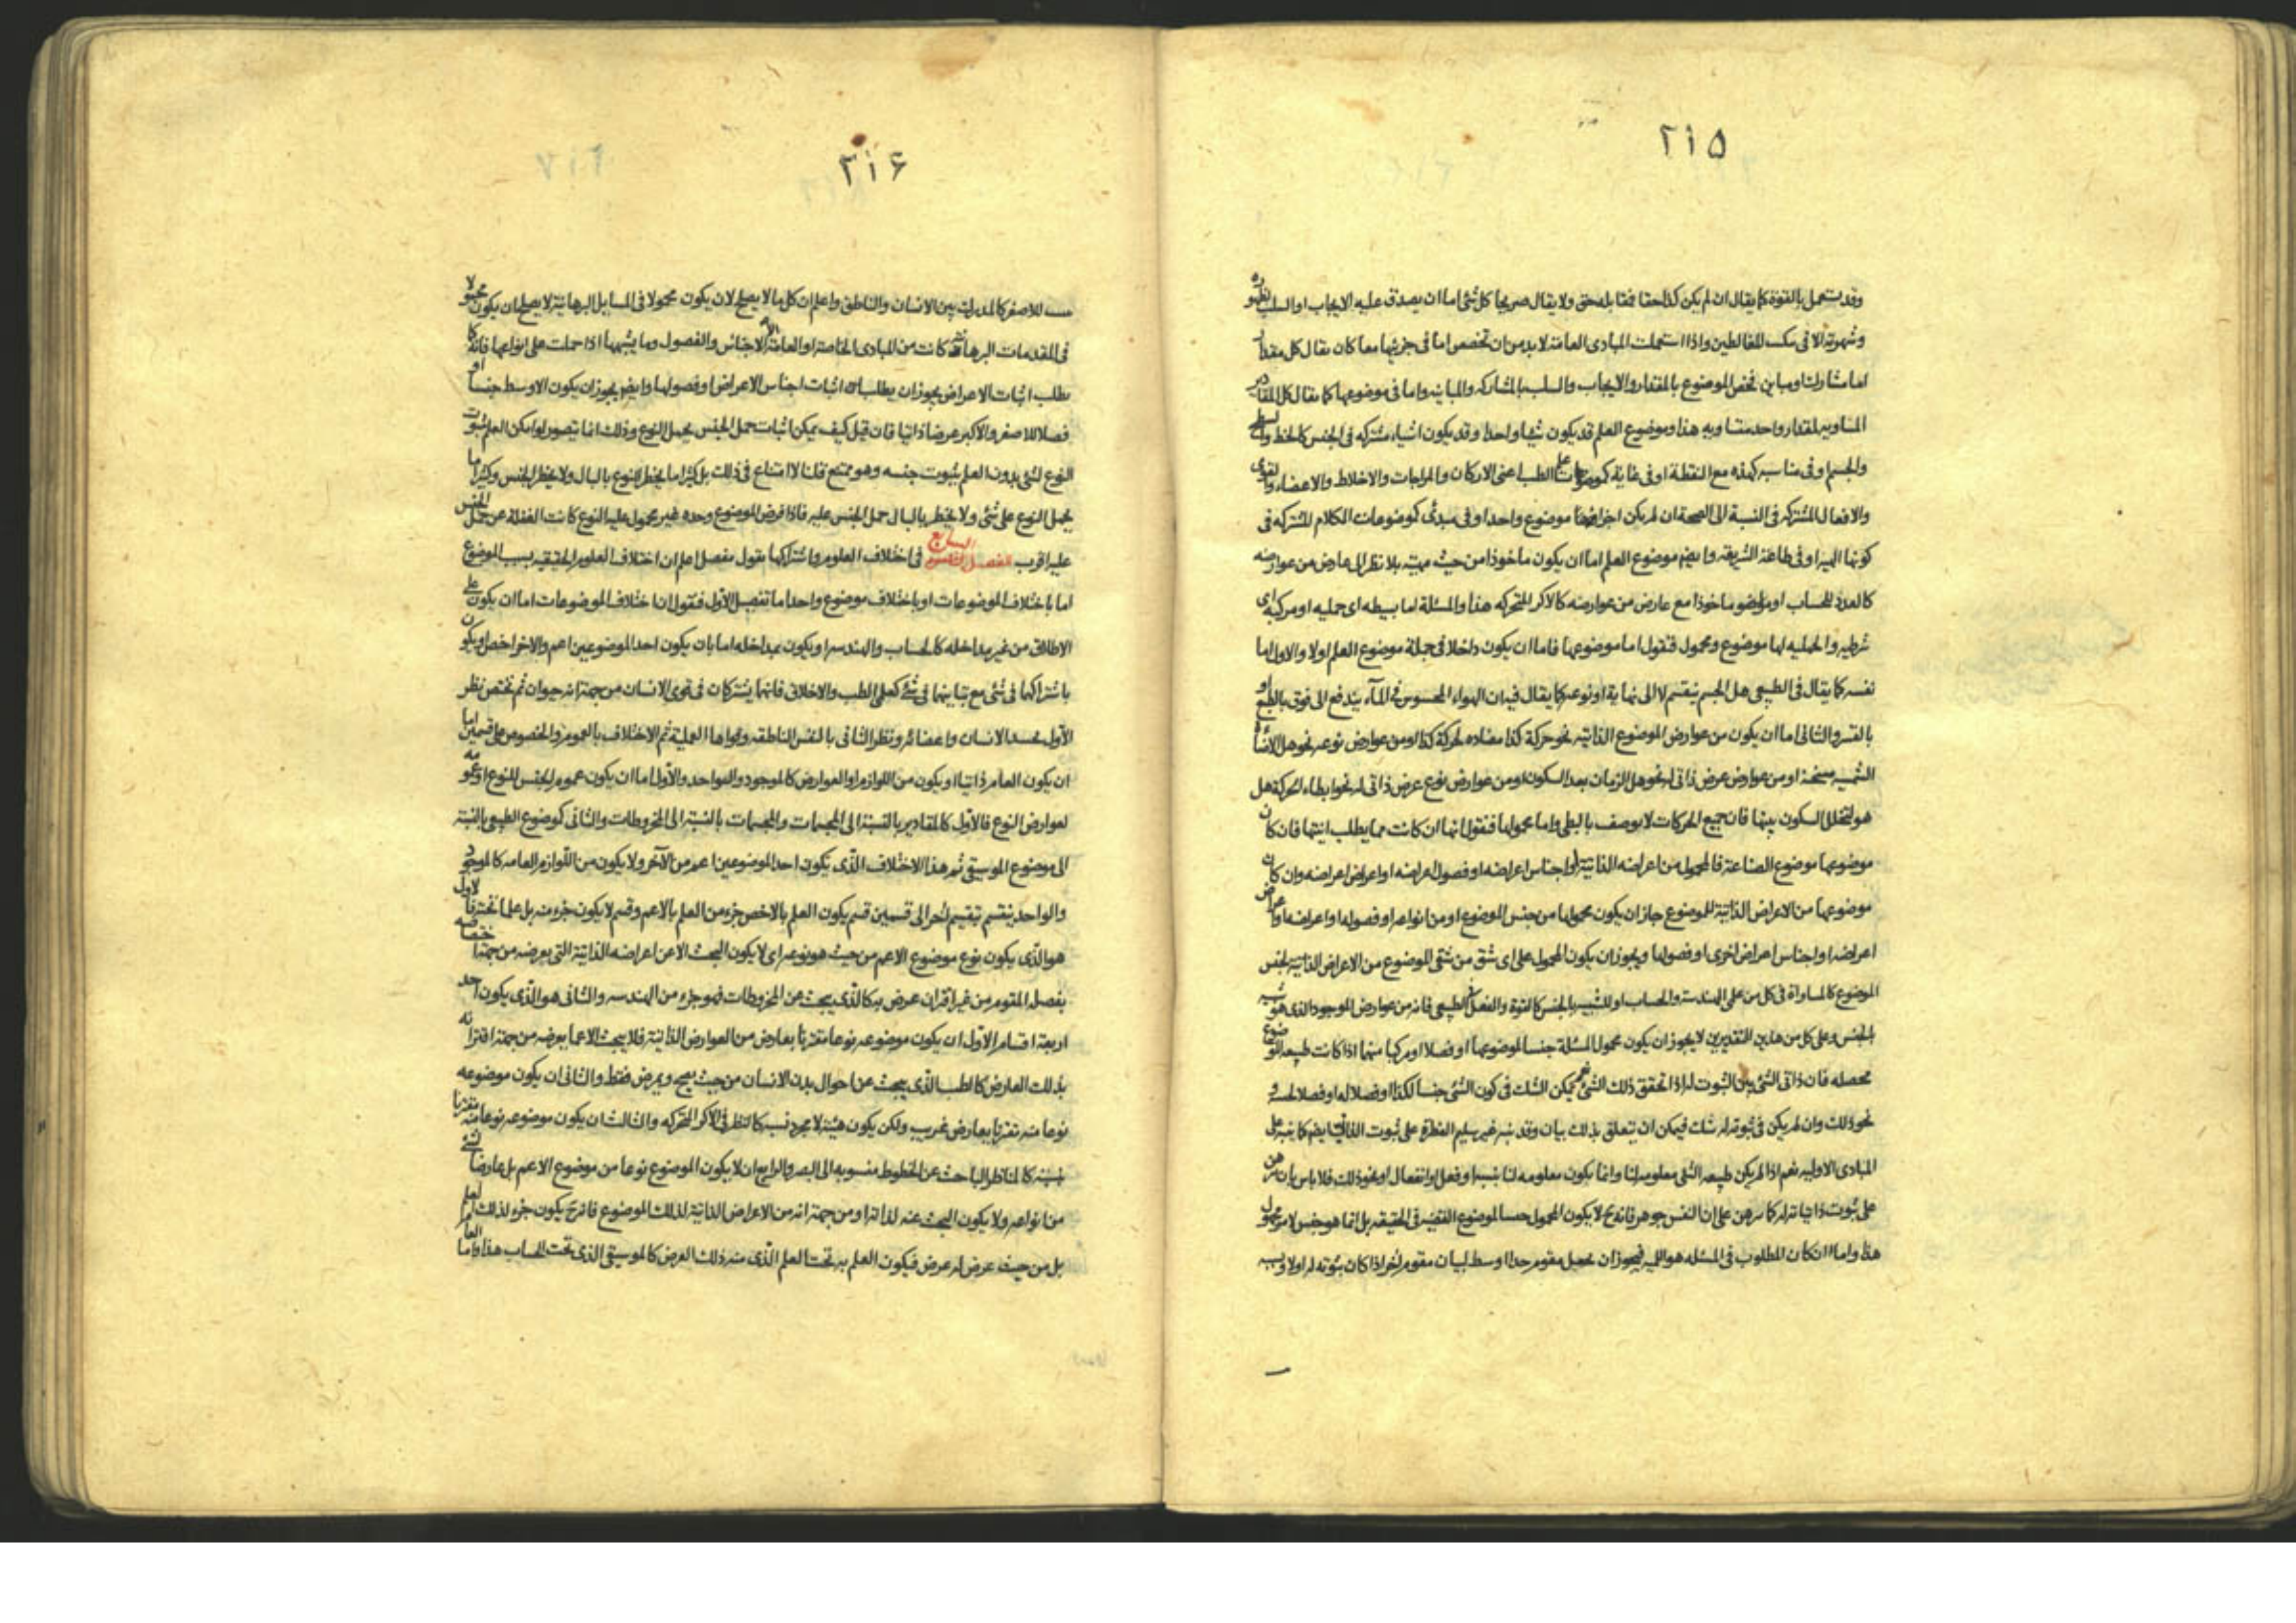 ٢١٥
وقد يستعمل بالقوة كما يقال ان لم يكن كذا حقا فمقابله حق ولا يقال صريحا كل شئ اما ان يصدق عليه الايجاب او السلب لظهوره
وشهرته الا فى المغالطين واذا استعملت المبادى العامة لا بد من ان تخصص اما فى جزئيها معا كان يقال كل مقدار
اما مشارك او مباين فخص الموضوع بالمقدار والايجاب والسلب بالمشاركه والمباينه واما فى موضوعها كما يقال كل المقادير
المساويه لمقدار واحد متساويه هذا وموضوع العلم قد يكون شيئا واحدا وقد يكون اشياء مشتركه فى الجنس كالخط والسطح
والجسم او فى مناسبه كهذه مع النقطة او فى غاية كموضوعات علم الطب اعنى الاركان والمزاجات والاخلاط والاعضاء والقوى
والافعال المشتركه فى النسبة الى الصحة ان لم يكن اجزاء موضوع واحد او فى مبدئ كموضوعات الكلام المشتركه فى
كونها الهية او فى طاعة الشريعة وايضم موضوع العلم اما ان يكون ماخوذا من حيث هيته بلا نظر الى عارض من عوارضه
كالعدد للحساب او ماخوذا مع عارض من عوارضه كالاكر المتحركه هذا والمسئلة اما بسيطه اى حمليه او مركبة اى
شرطيه والحمليه لها موضوع ومحمول فنقول اما موضوعها فاما ان يكون داخلا فى جملة موضوع العلم اولا والاول اما
نفسه كما يقال فى الطبيعى هل الجسم ينقسم لا الى نهاية او نوعه كما يقال فيه ان الهواء المحسوس فى المآء يندفع الى فوق بالطبع او
بالقسر والثانى اما ان يكون من عوارض الموضوع الذاتية نحو حركة كذا مضاده لحركة كذا او من عوارض نوعه نحو هل الاضاءة
الشمسيه مسخنة او من عوارض عرض ذاتى له نحو هل الزمان بعد السكون او من عوارض نوع عرض ذاتى له نحو ابطاء الحركة هل
هو لتخلل السكون بينها فان جميع الحركات لا يوصف بالبطى واما محمولها فنقول انها ان كانت مما يطلب انيتها فان كان
موضوعها موضوع الصناعة فالمحمول من اعراضه الذاتية او اجناس اعراضه او فصول اعراضه او اعراض اعراضه وان كان
موضوعها من الاعراض الذاتية للموضوع جاز ان يكون محمولها من جنس الموضوع او من انواعه او فصوله او اعراضه او اعراض
اعراضه او اجناس اعراض اخرى او فصولها ويجوز ان يكون المحمول على اى شق من شقى الموضوع من الاعراض الذاتية لجنس
الموضوع كالمساواة فى كل من على الهندسة والحساب او للشبيه بالجنس كالقوة والفعل فى الطبيعى فانه من عوارض الموجود الذى هو شبيه
الجنس وعلى كل من هذين التقديرين لا يجوز ان يكون محمول المسئلة جنسا لموضوعها او فصلا او مركبا منهما اذا كانت طبيعه الموضوع
محصله فان ذاتى الشئ بين الثبوت له اذا تحقق ذلك الشئ نعم يمكن الشك فى كون الشئ جنسا لكذا او فصلا له او فصلا لجنسه و
نحو ذلك وان لم يكن فى ثبوته له شك فيمكن ان يتعلق بذلك بيان وقد ينبه غير سليم الفطرة على ثبوت الذاتى ايضم كما ينبه على
المبادى الاوليه نعم اذا لم يكن طبيعه الشئ معلومه لنا وانما يكون معلومه لنا نسبه او فعل او انفعال او نحو ذلك فلا باس بان يبرهن
على ثبوت ذاتياته له كما يبرهن على ان النفس جوهر فانه ح لا يكون المحمول جنسا لموضوع القضيه فى الحقيقه بل انما هو جنس لامر مجهول
هذا واما ان كان المطلوب فى المسئله هو اللميه فيجوز ان يحمل مقوم حدا اوسط لبيان مقوم اخر اذا كان ثبوته له اولا وبسببه
٢١٦
للاصغر كالمدرك بين الانسان والناطق واعلم ان كل ما لا يصلح لان يكون محمولا فى المسايل البرهانية لا يصلح ان يكون محمولا
فى المقدمات البرهانية كانت من المبادى الخاصة او العامة الا الاجناس والفصول وما يشبهها اذا حملت على انواعها فانه كما
يطلب اثبات الاعراض يجوز ان يطلب اثبات اجناس الاعراض او فصولها وايضم يجوز ان يكون الاوسط جنسا او
فصلا للاصغر والاكبر عرضا ذاتيا فان قيل كيف يمكن اثبات حمل الجنس بحمل النوع وذلك انما يتصور لو امكن العلم بثبوت
النوع لشئ بدون العلم بثبوت جنسه وهو ممتنع قلنا لا امتناع فى ذلك بل كثيرا ما يخطر النوع بالبال ولا يخطر الجنس وكثيرا ما
يحمل النوع على شئ ولا يخطر بالبال حمل الجنس عليه فاذا فرض الموضوع وحده غير محمول عليه النوع كانت الغفلة عن حمل الجنس
عليه اقرب الفصل السابع فى اختلاف العلوم واشتراكها بقول مفصل اعلم ان اختلاف العلوم الحقيقيه بسبب الموضوع
اما باختلاف الموضوعات او باختلاف موضوع واحد اما تفصيل الاول فنقول ان اختلاف الموضوعات اما ان يكون على
الاطلاق من غير مداخله كالحساب والهندسه او يكون بمداخله اما بان يكون احد الموضوعين اعم والاخر اخص او يكون
باشتراكهما فى شئ مع تباينهما فى شئ كعلمى الطب والاخلاق فانهما يشتركان فى قوى الانسان من جهة انه حيوان ثم تختص نظر
الاول بجسد الانسان واعضائه ونظر الثانى بالنفس الناطقه وقواها العملية ثم الاختلاف بالعموم والخصوص على قسمين اما
ان يكون العام ذاتيا او يكون من اللوازم او العوارض كالموجود والواحد والاول اما ان يكون عموم الجنس للنوع او عمومه
لعوارض النوع فالاول كالمقادير بالنسبة الى المجسمات والمجسمات بالنسبة الى المخروطات والثانى كموضوع الطبيعى بالنسبة
الى موضوع الموسيقى ثم هذا الاختلاف الذى يكون احد الموضوعين اعم من الآخر ولا يكون من اللوازم العامه كالموجود
والواحد ينقسم تقسيم اخر الى قسمين قسم يكون العلم بالاخص جزء من العلم بالاعم وقسم لا يكون جزء منه بل علما تحته فالاول
هو الذى يكون نوع موضوع الاعم من حيث هو نوعه اى لا يكون البحث الا عن اعراضه الذاتية التى يعرضه من جهة اختصاصه
بفصل المتوم من غير اقران عرض به كالذى يبحث عن المخروطات فهو جزء من الهندسه والثانى هو الذى يكون احد
اربعة اقسام الاول ان يكون موضوعه نوعا مقترنا بعارض من العوارض الذاتية فلا يبحث الا عما يعرضه من جهة اقترانه
بذلك العارض كالطب الذى يبحث عن احوال بدن الانسان من حيث يصح ويمرض فقط والثانى ان يكون موضوعه
نوعا منه مقترنا بعارض غريب ولكن يكون هيئة لا مجرد نسبه كالنظر فى الاكر المتحركه والثالث ان يكون موضوعه نوعا منه مقترنا
بنسبة كالمناظر الباحث عن الخطوط منسوبه الى البصر والرابع ان لا يكون الموضوع نوعا من موضوع الاعم بل عارضا لشئ
من انواعه ولا يكون البحث عنه لذاته او من جهة انه من الاعراض الذاتية لذلك الموضوع فانه ح يكون جزء لذلك العلم
بل من حيث عرض له عرض فيكون العلم به تحت العلم الذى منه ذلك العرض كالموسيقى الذى تحت الحساب هذا واما